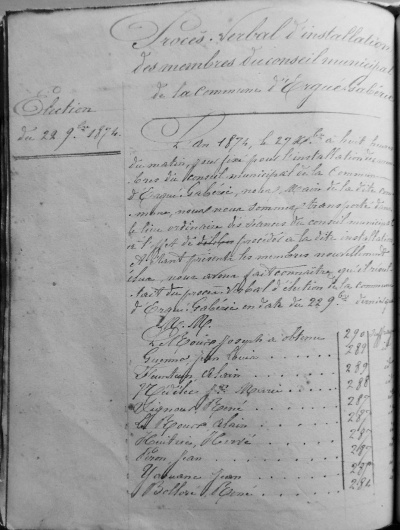 Procès-Verbal d'installation
des membres du conseil municipal
de la commune d'Ergué-Gabéric
Élection
du 22 9bre 1874.
L'an 1874, le 27 Xbre à huit heures
du matin, jour fixé pour l'installation des mem-
bres du conseil municipal de la commune
d'Ergué-Gabéric, nous, Maire de la dite com-
mune, nous nous sommes transporté dans
le lieu ordinaire des séances du conseil municipal
à l'effet de procéder à la dite installation
Étant présents les membres nouvellement
élus, nous avons fait connaître qu'il résul-
tait du procès-verbal d'élection de la commune
d'Ergué-Gabéric en date du 22 9bre dernier
M. M.
Le Mour Joseph a obtenu 290 suffrages
Jean Louis 289
Alain 289
Marie 288
René 287
Le Alain 287
Hervé 287
Jean 287
Jean 285
René 284